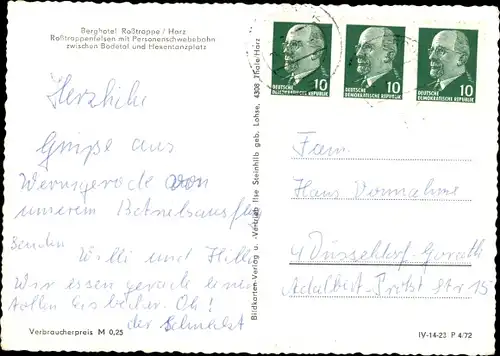 Berghotel Roßtrappe / Harz
Roßtrappenfelsen mit Personenschwebebahn
zwischen Bodetal und Hexentanzplatz
Herzliche
Grüße aus
Wernigerode von
unserem Betriebsausflug
senden
Willi und Hilla
Wir essen gerade einen
tollen Eisbecher. Oh!
der schmeckt
Verbraucherpreis M 0,25
Bildkarten-Verlag u. -Vertrieb Ilse Steinhilb geb. Lohse, 4308 Thale/Harz
10
DEUTSCHE
DEMOKRATISCHE REPUBLIK
10
DEUTSCHE
DEMOKRATISCHE REPUBLIK
10
DEUTSCHE
DEMOKRATISCHE REPUBLIK
Fam.
Hans
4 Düsseldorf-Gerath
Adalbert-Probst Str 15
IV-14-23 P 4/72